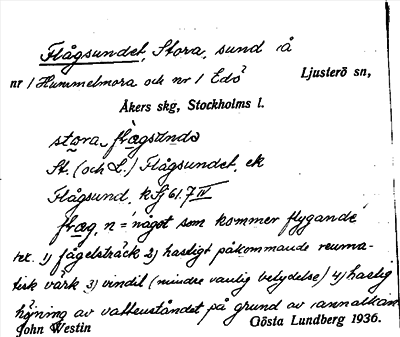 Flågsundet, Stora, sund å
nr 1 Hummelmora och nr 1 Edö Ljusterö sn,
Åkers skg, Stockholms l.
stora
St. (och L.) Flågsundet, ek
Flågsund, kSj 61.7 IV
n = 'något som kommer flygande'
t.ex. 1) fågelsträck 2) hastigt påkommande reuma-
tisk värk 3) vindil (mindre vanlig betydelse) 4) hastig
höjning av vattenståndet på grund av annalkan
John Westin Gösta Lundberg 1936.